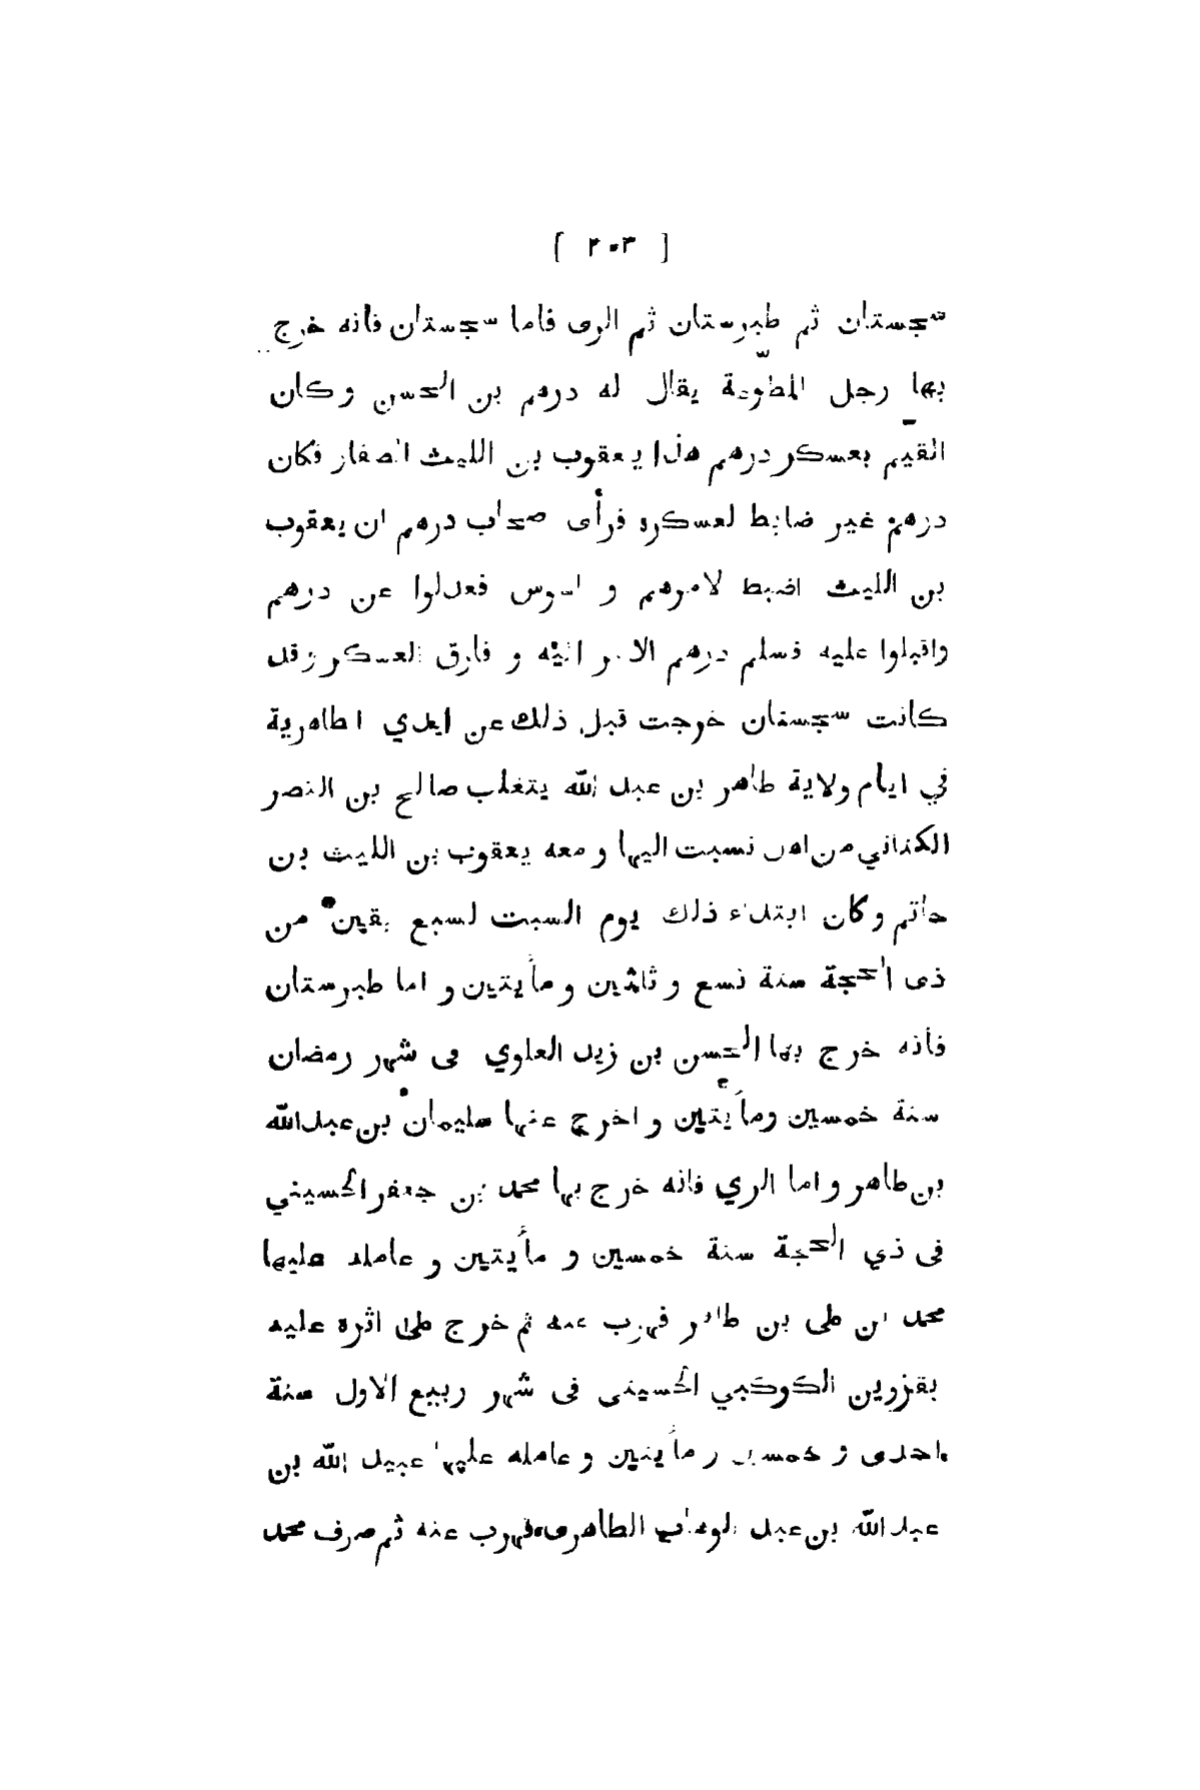 [ ٢٠٣ ]
سجستان ثم طبرستان ثم الرى فاما سجستان فانه خرج
بها رجل المطّوعة يقال له درهم بن الحسن وكان
القيّم بعسكر درهم هذا يعقوب بن الليث الصفار فكان
درهم غير ضابط لعسكره فرأى صحاب درهم ان يعقوب
بن الليث اضبط لامورهم و اسوس فعدلوا عن درهم
واقبلوا عليه فسلم درهم الامر اليه و فارق العسكر وقد
كانت سجستان خرجت قبل ذلك عن ايدي الطاهرية
في ايام ولاية طاهر بن عبد الله يتغلب صالح بن النصر
الكناني من اهل نسبت اليها ومعه يعقوب بن الليث بن
حاتم وكان ابتداء ذلك يوم السبت لسبع بقين من
ذى الحجة سنة تسع و ثلثين و مأيتين و اما طبرستان
فانه خرج بها الحسن بن زيد العلوي فى شهر رمضان
سنة خمسين ومأيتين و اخرج عنها سليمان بن عبدالله
بن طاهر و اما الري فانه خرج بها محمد بن جعفر الحسيني
فى ذي الحجة سنة خمسين و مأيتين و عامله عليها
محمد بن على بن طاهر فهرب عنه ثم خرج على اثره عليه
بقزوين الكوكبي الحسينى فى شهر ربيع الاول سنة
احدى و خمسين و مأيتين و عامله عليها عبيد الله بن
عبد الله بن عبد الوهاب الطاهرى فهرب عنه ثم صرف محمد